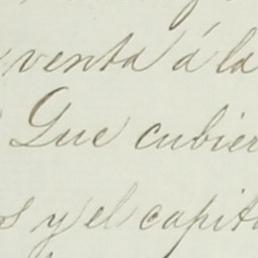 venta á la
Que cubier
s y el capita